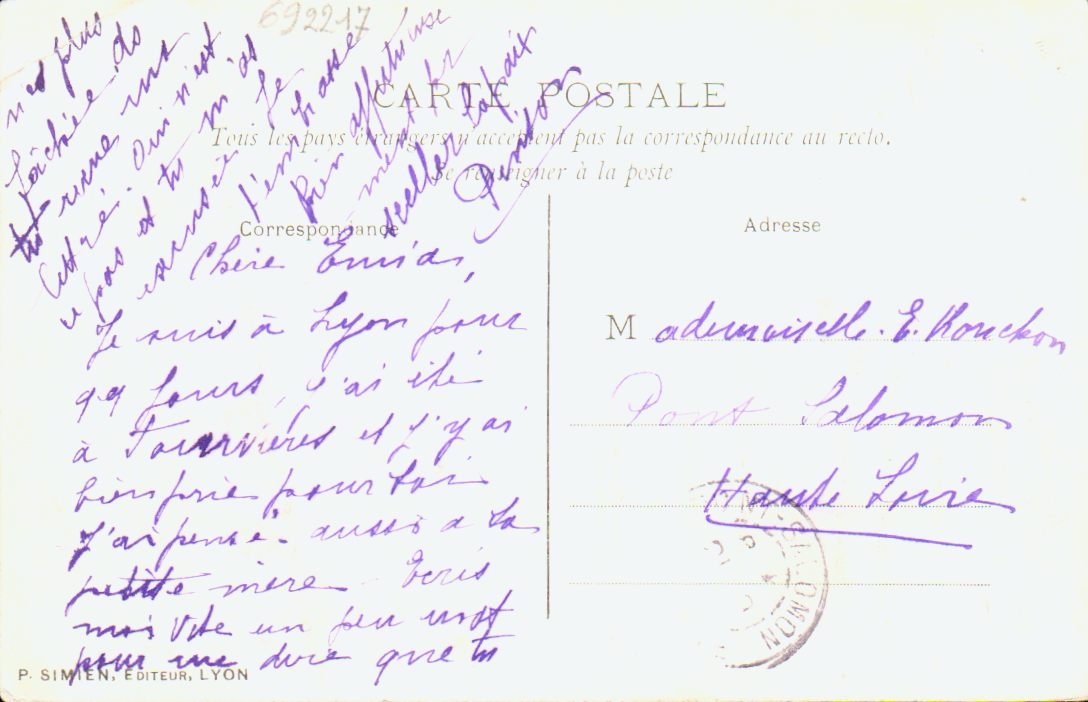 692217
CARTE POSTALE
Tous les pays étrangers n'acceptent pas la correspondance au recto.
Se renseigner à la poste
Correspondance
Chère
Je suis à Lyon pour
qq jours, j'ai été
à Fourvières et j'y ai
bien prié pour toi
J'ai pensé aussi a ta
petite mère - Ecris
moi vite un peu mot
pour me dire que tu
n'es plus
fâchée. de
ta
Oui n'est
ce pas et tu m'as
Je
t'embrasse
bien affectueuse
ment
sceller la paix
Adresse
Mademoiselle. E.
Pont Salomon
Haute Loire
SALOMON
P. SIMIEN, ÉDITEUR, LYON